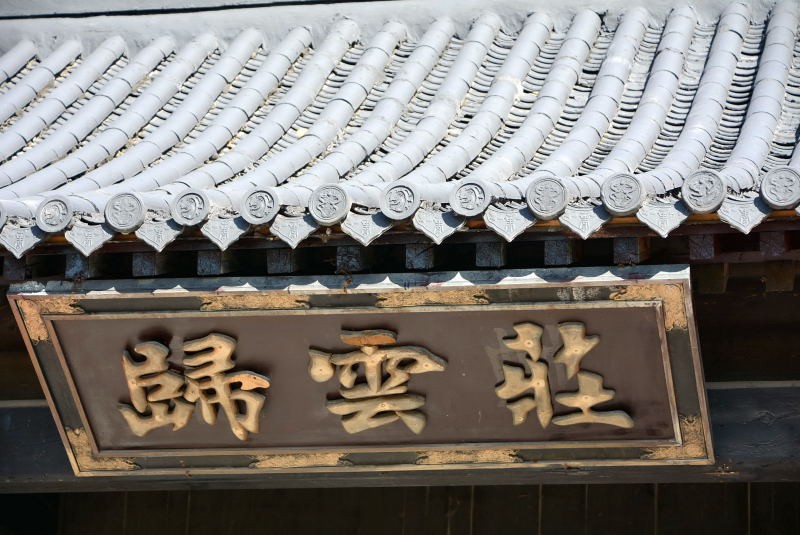 歸雲莊